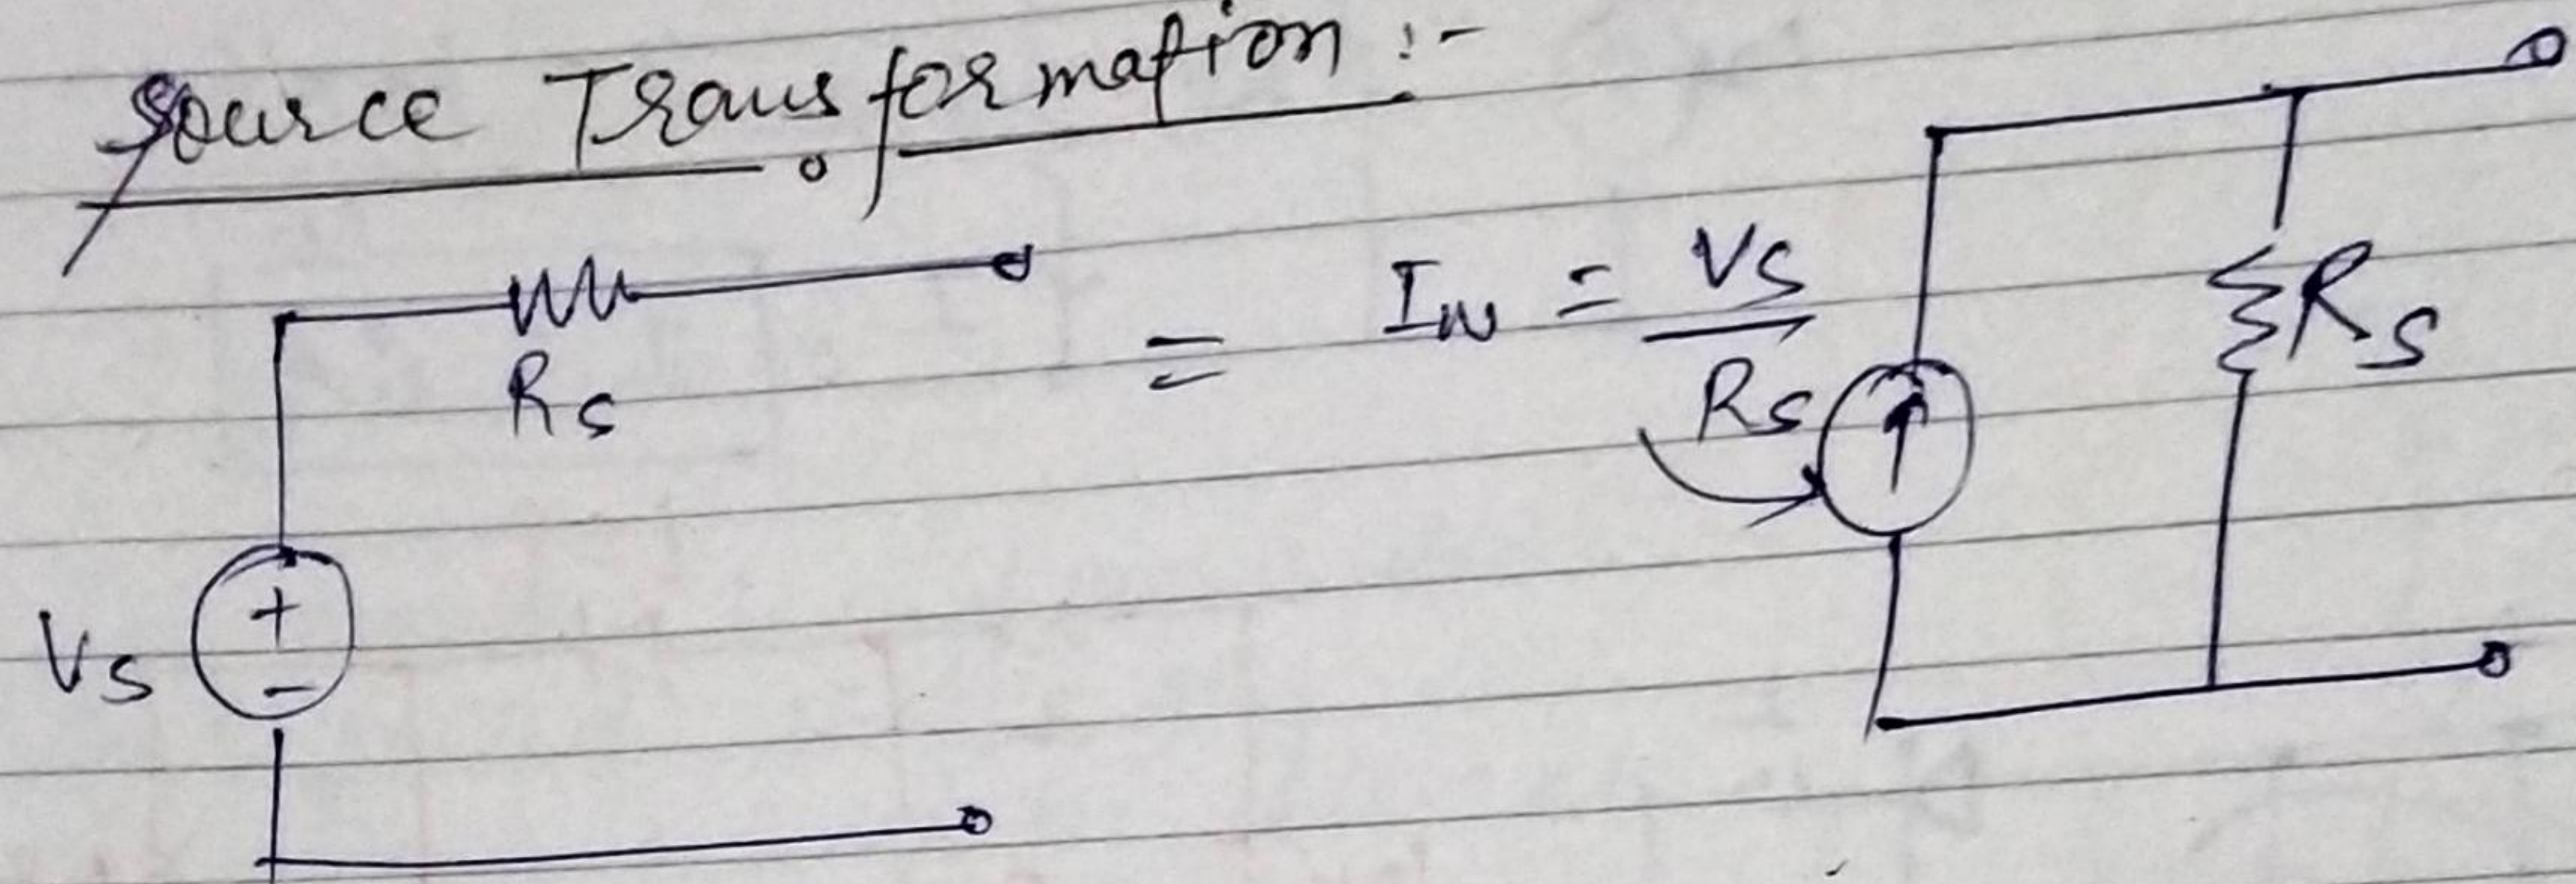 Source Transformation :-
Rs
Vs
+
-
=
IN = Vs
Rs
Rs